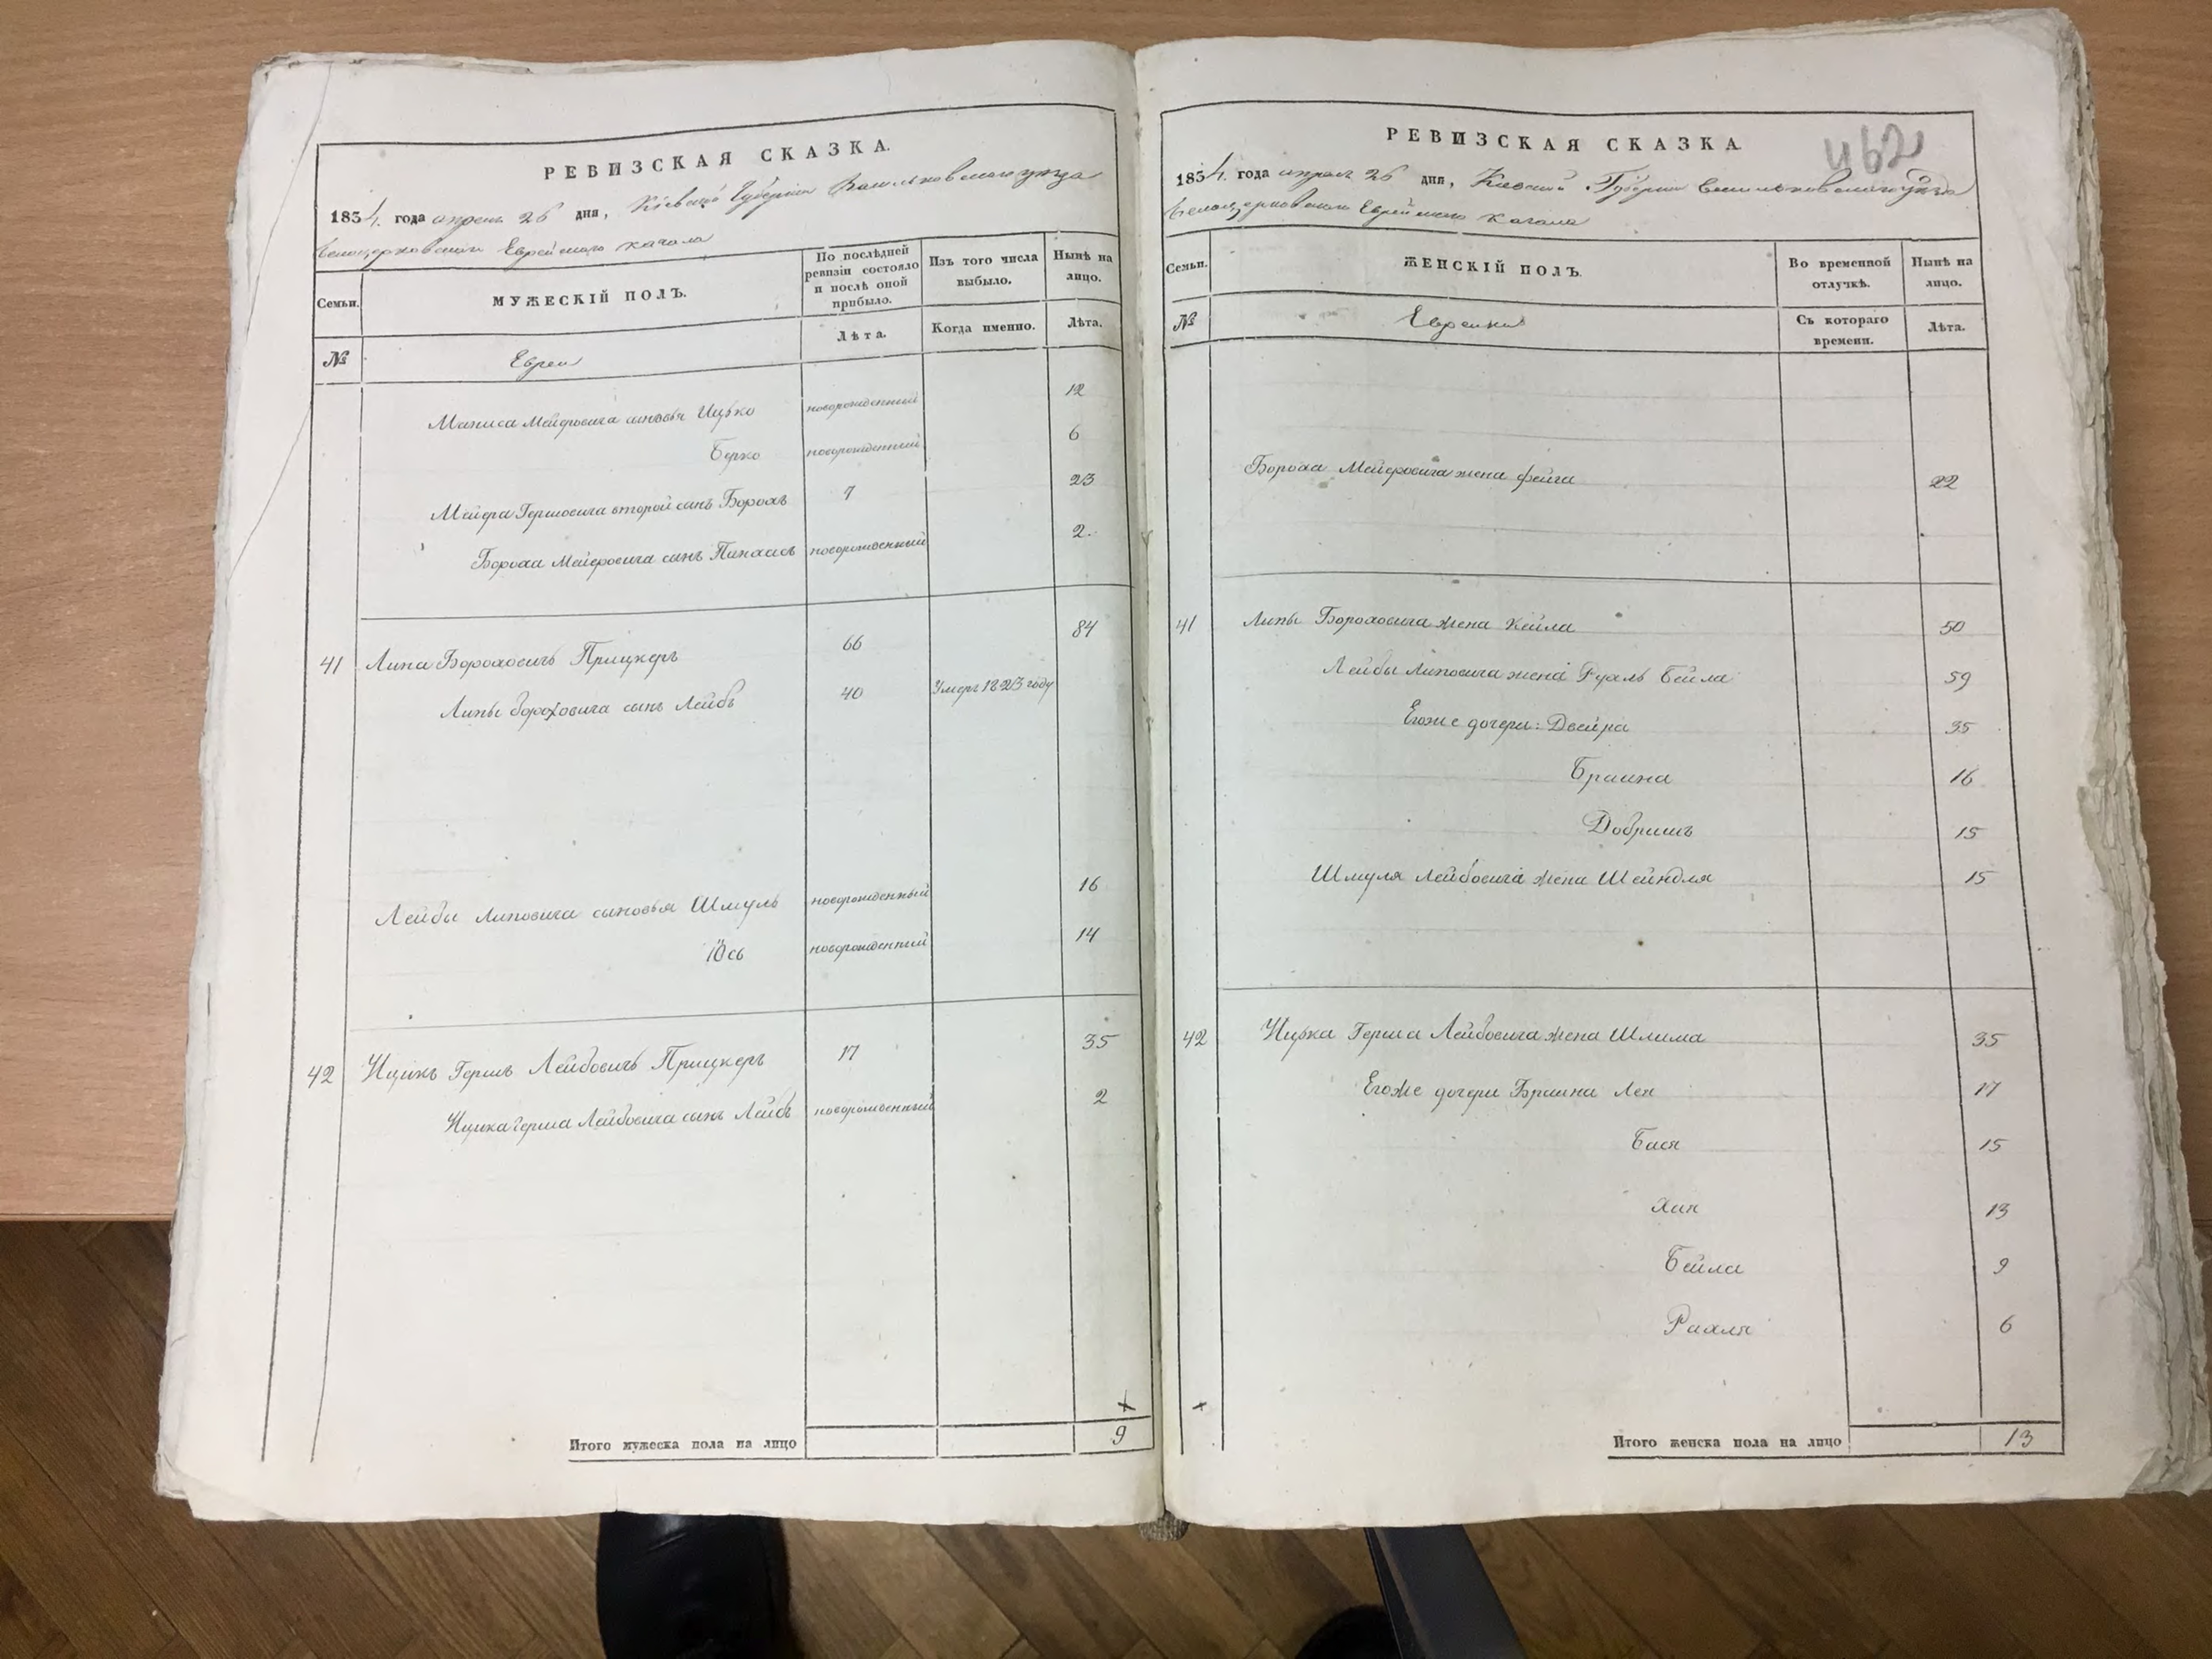 РЕВИЗСКАЯ СКАЗКА.
1834. года апреля 26 дня, Кіевской Губерніи Васильковскаго уезда
Белоцерковскаго Еврейскаго кагала
Семьи.
МУЖЕСКІЙ ПОЛЪ.
По послѣдней ревизіи состояло и послѣ оной прибыло.
Изъ того числа выбыло.
Нынѣ на лицо.
№
Евреи
Лѣта.
Когда именно.
Лѣта.
Маниса Мейеровича сыновья Ицько новорожденный 12
Берко новорожденный 6
Мейера Гершовича второй сынъ Борохъ 7 23
Бороха Мейеровича сынъ Пинхасъ новорожденный 2.
41 Липа Бороховичъ Прицкеръ 66 84
Липы Бороховича сынъ Лейбъ 40 Умеръ 1823 году
Лейбы Липовича сыновья Шмуль новорожденный 16
Юсь новорожденный 14
42 Ицикъ Гершъ Лейбовичъ Прицкеръ 17 35
Ицика Герша Лейбовича сынъ Лейбъ новорожденный 2
Итого мужеска пола на лицо 9
РЕВИЗСКАЯ СКАЗКА.
462
1834. года апреля 26 дня, Киевской Губернии Васильковскаго уезда
Белоцерковскаго Еврейскаго Кагала
Семьи.
ЖЕНСКІЙ ПОЛЪ.
Во временной отлучкѣ.
Нынѣ на лицо.
№
Еврейки
Съ котораго времени.
Лѣта.
Бороха Мейеровича жена Фейга 22
41 Липы Бороховича жена Кейла 50
Лейбы Липовича жена Рухль Бейла 59
Егоже дочери: Двейра 35
Браина 16
Добришъ 15
Шмуля Лейбовича жена Шейндля 15
42 Ицька Герша Лейбовича жена Шлима 35
Егоже дочери Браина Лея 17
Бася 15
Хая 13
Бейла 9
Рахля 6
Итого женска пола на лицо 13